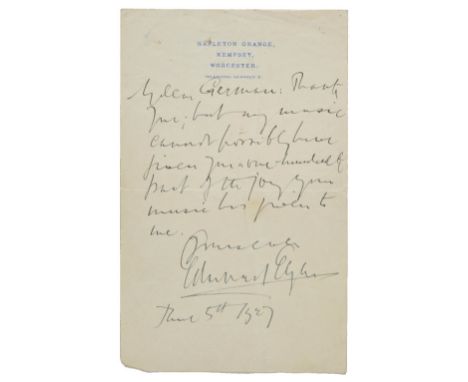 NAPLETON GRANGE,
KEMPSEY,
WORCESTER.
My dear German: Thank
you; but my music
cannot possibly have
given you one-hundredth
part of the joy your
music has given to
me.
Yours ever
Edward Elgar
June 5th 1927